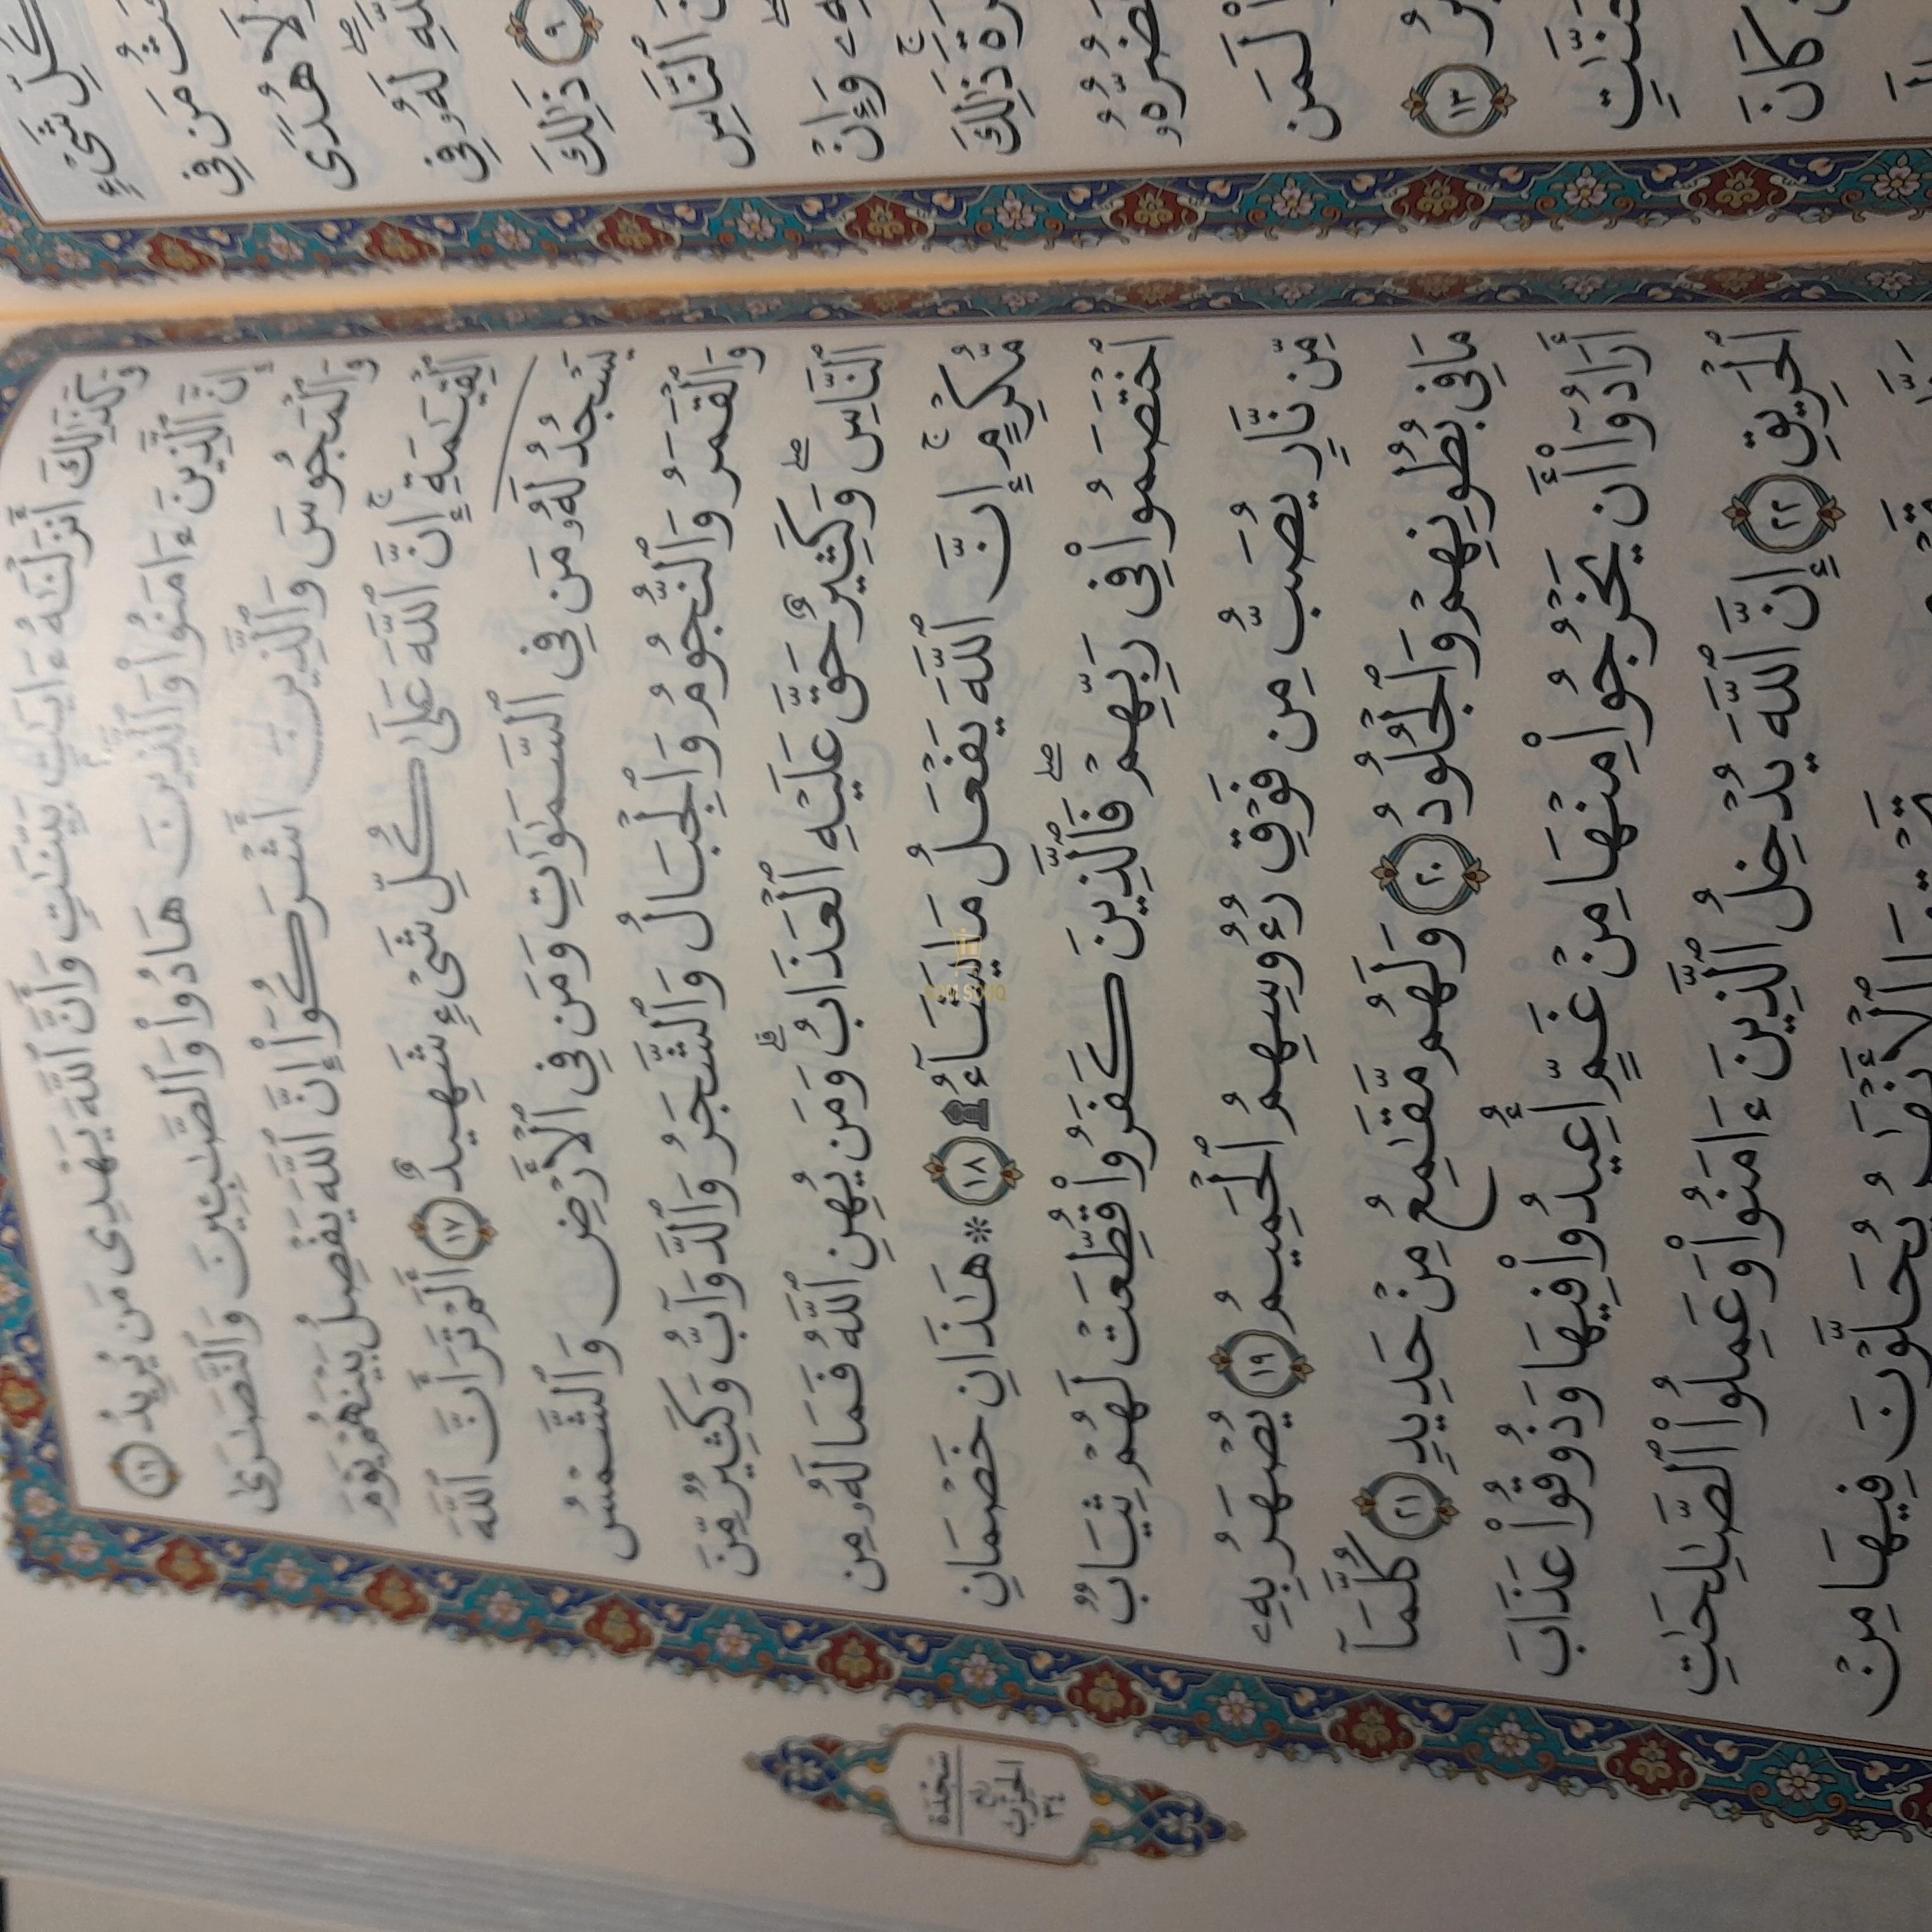 وَكَذَٰلِكَ أَنزَلْنَٰهُ ءَايَٰتٍۭ بَيِّنَٰتٍ وَأَنَّ ٱللَّهَ يَهْدِى مَن يُرِيدُ ١٦
إِنَّ ٱلَّذِينَ ءَامَنُوا۟ وَٱلَّذِينَ هَادُوا۟ وَٱلصَّٰبِـِٔينَ وَٱلنَّصَٰرَىٰ
وَٱلْمَجُوسَ وَٱلَّذِينَ أَشْرَكُوٓا۟ إِنَّ ٱللَّهَ يَفْصِلُ بَيْنَهُمْ يَوْمَ
ٱلْقِيَٰمَةِ ۚ إِنَّ ٱللَّهَ عَلَىٰ كُلِّ شَىْءٍ شَهِيدٌ ١٧ أَلَمْ تَرَ أَنَّ ٱللَّهَ
يَسْجُدُ لَهُۥ مَن فِى ٱلسَّمَٰوَٰتِ وَمَن فِى ٱلْأَرْضِ وَٱلشَّمْسُ
وَٱلْقَمَرُ وَٱلنُّجُومُ وَٱلْجِبَالُ وَٱلشَّجَرُ وَٱلدَّوَآبُّ وَكَثِيرٌ مِّنَ
ٱلنَّاسِ ۖ وَكَثِيرٌ حَقَّ عَلَيْهِ ٱلْعَذَابُ ۗ وَمَن يُهِنِ ٱللَّهُ فَمَا لَهُۥ مِن
مُّكْرِمٍ ۚ إِنَّ ٱللَّهَ يَفْعَلُ مَا يَشَآءُ ۩ ١٨ ۞ هَٰذَانِ خَصْمَانِ
ٱخْتَصَمُوا۟ فِى رَبِّهِمْ ۖ فَٱلَّذِينَ كَفَرُوا۟ قُطِّعَتْ لَهُمْ ثِيَابٌ
مِّن نَّارٍ يُصَبُّ مِن فَوْقِ رُءُوسِهِمُ ٱلْحَمِيمُ ١٩ يُصْهَرُ بِهِۦ
مَا فِى بُطُونِهِمْ وَٱلْجُلُودُ ٢٠ وَلَهُم مَّقَٰمِعُ مِنْ حَدِيدٍ ٢١ كُلَّمَآ
أَرَادُوٓا۟ أَن يَخْرُجُوا۟ مِنْهَا مِنْ غَمٍّ أُعِيدُوا۟ فِيهَا وَذُوقُوا۟ عَذَابَ
ٱلْحَرِيقِ ٢٢ إِنَّ ٱللَّهَ يُدْخِلُ ٱلَّذِينَ ءَامَنُوا۟ وَعَمِلُوا۟ ٱلصَّٰلِحَٰتِ
ٱلْأَنْهَٰرُ يُحَلَّوْنَ فِيهَا مِنْ
سَجْدَة
رُبْع
الحِزْب
٣٤
كُلِّ شَىْءٍ
مَن فِى
وَلَا هُدًى
لَهُۥ فِى
٩ ذَٰلِكَ
ٱلنَّاسِ
وَإِنْ
ذَٰلِكَ
ضَرُّهُۥٓ
لَمَن
١٣
كَانَ